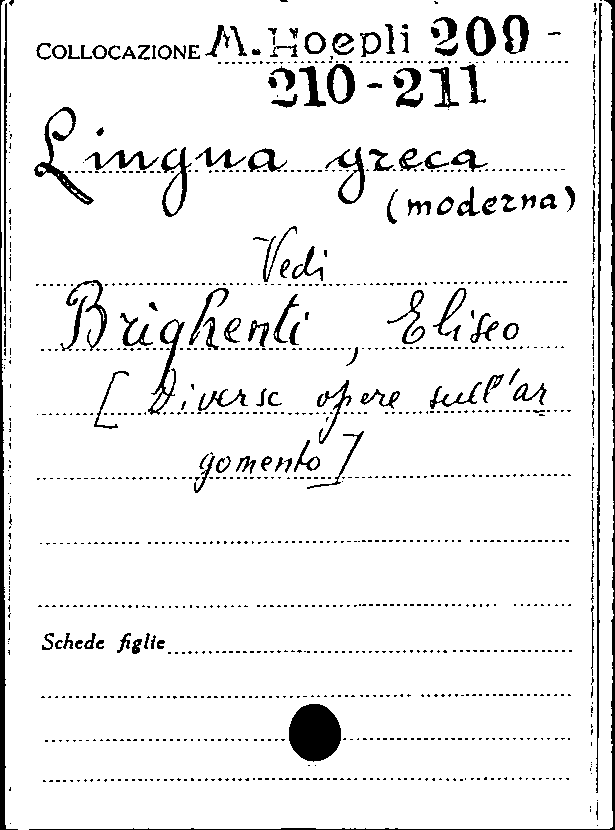 COLLOCAZIONE M. Hoepli 209 -
210 - 211
Lingua greca
(moderna)
Vedi
Brighenti, Eliseo
[ Diverse opere sull'ar
gomento ]
Schede figlie